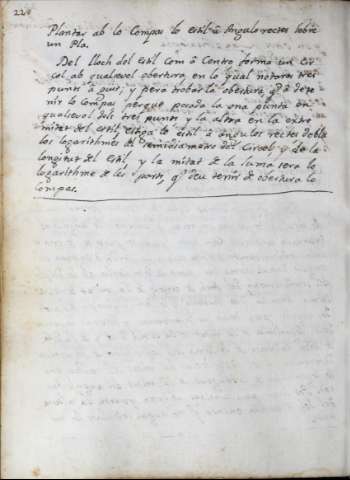 220
Plantar ab lo Compas lo estil â Angulo rectes sobre
un Pla.
Del lloch del estil com â Centro forma un cir-
col ab qualsevol obertura, en lo qual notaras tres
punts â gust; y perâ trobar la obertura, q̃ â de te-
nir lo Compas perque posada la una punta en
qualsevol dels tres punts y la altra en la extre-
mitat del estil, estiga lo estil â angulos rectes dobla
los logarithmes del semidiametro del Circol, y de la
longitut del estil, y la mitat de la suma sera lo
logarithme de les parts, q̃ deu tenir de obertura lo
Compas.